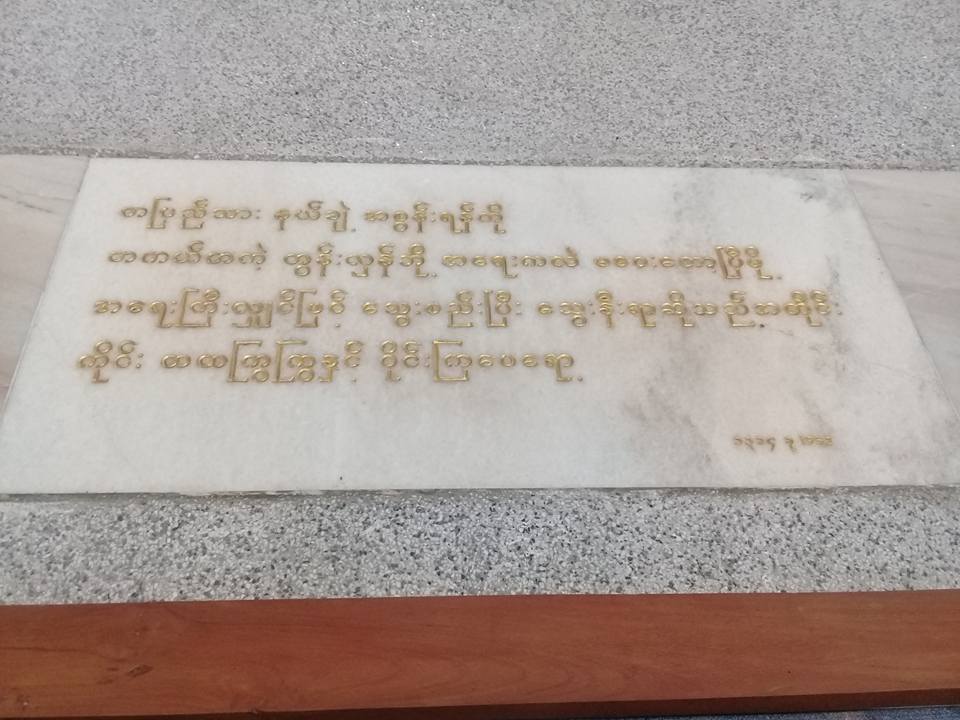 တပြည်သား နယ်ချဲ့ အစွန်းရန်ကို
တကယ်ထကဲ့ တွန်းလှန်ဘို့ အရေးကလဲ မဝေးတော့ပြီမို့
အရေးကြီးလျှင်ဖြင့် သွေးစည်းပြီး သွေးနီးရာဆိုသည့်အတိုင်း
ကိုင်း ထထကြွကြွနှင့် ဝိုင်းကြပေရော့
၁၃၁၄ ခု